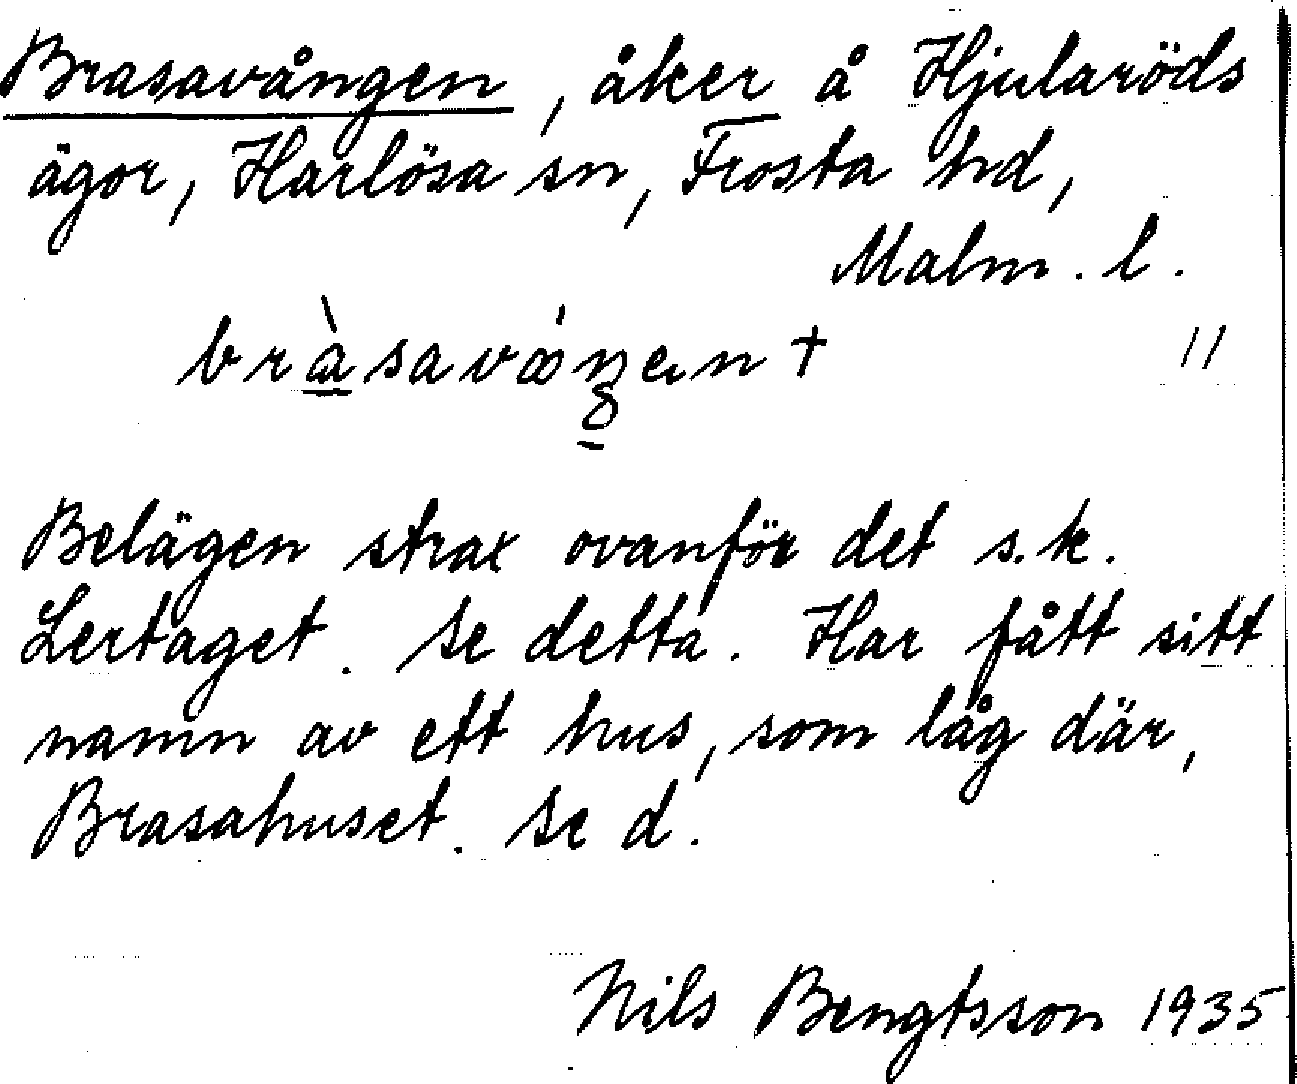 Brasavången, åker å Hjularöds
ägor, Harlösa sn, Frosta hd,
Malm. l.
11
Belägen strax ovanför det s.k.
Lertaget. Se detta. Har fått sitt
namn av ett hus, som låg där,
Brasahuset. Se d.
Nils Bengtsson 1935